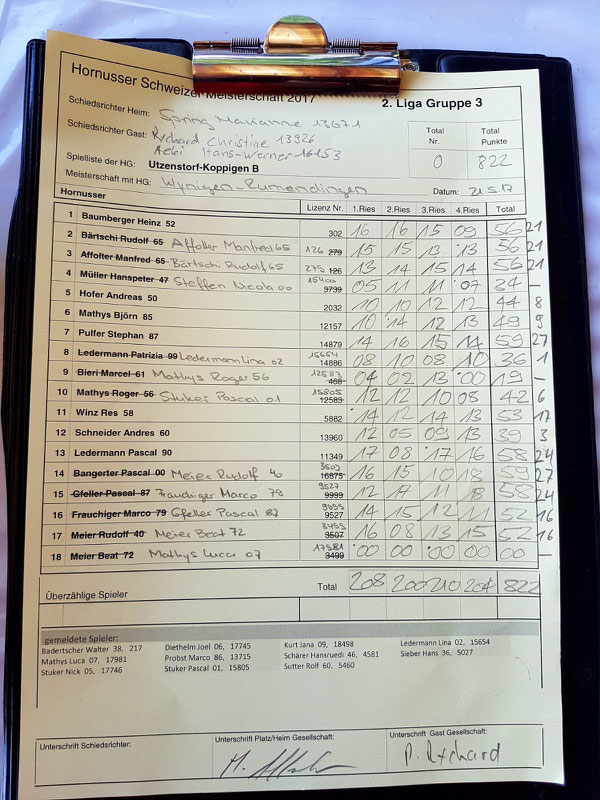 Hornusser Schweizer Meisterschaft 2017
2. Liga Gruppe 3
Schiedsrichter Heim: Spring Marianne 13671
Schiedsrichter Gast: Richard Christine 13926
Aebi Hans-Werner 16153
Total Nr. 0
Total Punkte 822
Spielliste der HG: Utzenstorf-Koppigen B
Meisterschaft mit HG: Wynigen-Rumendingen
Datum: 21.5.17
Hornusser Lizenz Nr. 1.Ries 2.Ries 3.Ries 4.Ries Total
1 Baumberger Heinz 52 302 16 16 15 09 56 21
2 Bärtschi Rudolf 65 Affolter Manfred 65 126 279 15 15 13 13 56 21
3 Affolter Manfred 65 Bärtschi Rudolf 65 279 126 13 14 15 14 56 21
4 Müller Hanspeter 47 Steffen Nicola 00 15400 9739 05 11 11 07 34 –
5 Hofer Andreas 50 2032 10 10 12 12 44 8
6 Mathys Björn 85 12157 10 14 12 13 49 9
7 Pulfer Stephan 87 14879 14 16 15 14 59 27
8 Ledermann Patrizia 99 Ledermann Lina 02 15654 14886 08 10 08 10 36 1
9 Bieri Marcel 61 Mathys Roger 56 12583 468 04 02 13 00 19 –
10 Mathys Roger 56 Stuker Pascal 01 15805 12583 12 12 10 08 42 6
11 Winz Res 58 5882 14 12 14 13 53 17
12 Schneider Andres 60 13960 12 05 09 13 39 3
13 Ledermann Pascal 90 11349 17 08 17 16 58 24
14 Bangerter Pascal 00 Meier Rudolf 40 3507 16875 16 15 10 18 59 27
15 Gfeller Pascal 87 Frauchiger Marco 79 9527 9999 12 17 11 18 58 24
16 Frauchiger Marco 79 Gfeller Pascal 87 9999 9527 14 15 12 11 52 16
17 Meier Rudolf 40 Meier Beat 72 3499 3507 16 08 13 15 52 16
18 Meier Beat 72 Mathys Luca 07 17981 3499 00 00 00 00 00 –
Total 208 200 210 204 822
Überzählige Spieler
gemeldete Spieler:
Badertscher Walter 38, 217 Diethelm Joel 06, 17745 Kurt Jana 09, 18498 Ledermann Lina 02, 15654
Mathys Luca 07, 17981 Probst Marco 86, 13715 Schärer Hansruedi 46, 4581 Sieber Hans 36, 5027
Stuker Nick 05, 17746 Stuker Pascal 01, 15805 Sutter Rolf 60, 5460
Unterschrift Schiedsrichter: Unterschrift Platz/Heim Gesellschaft: Unterschrift Gast Gesellschaft: